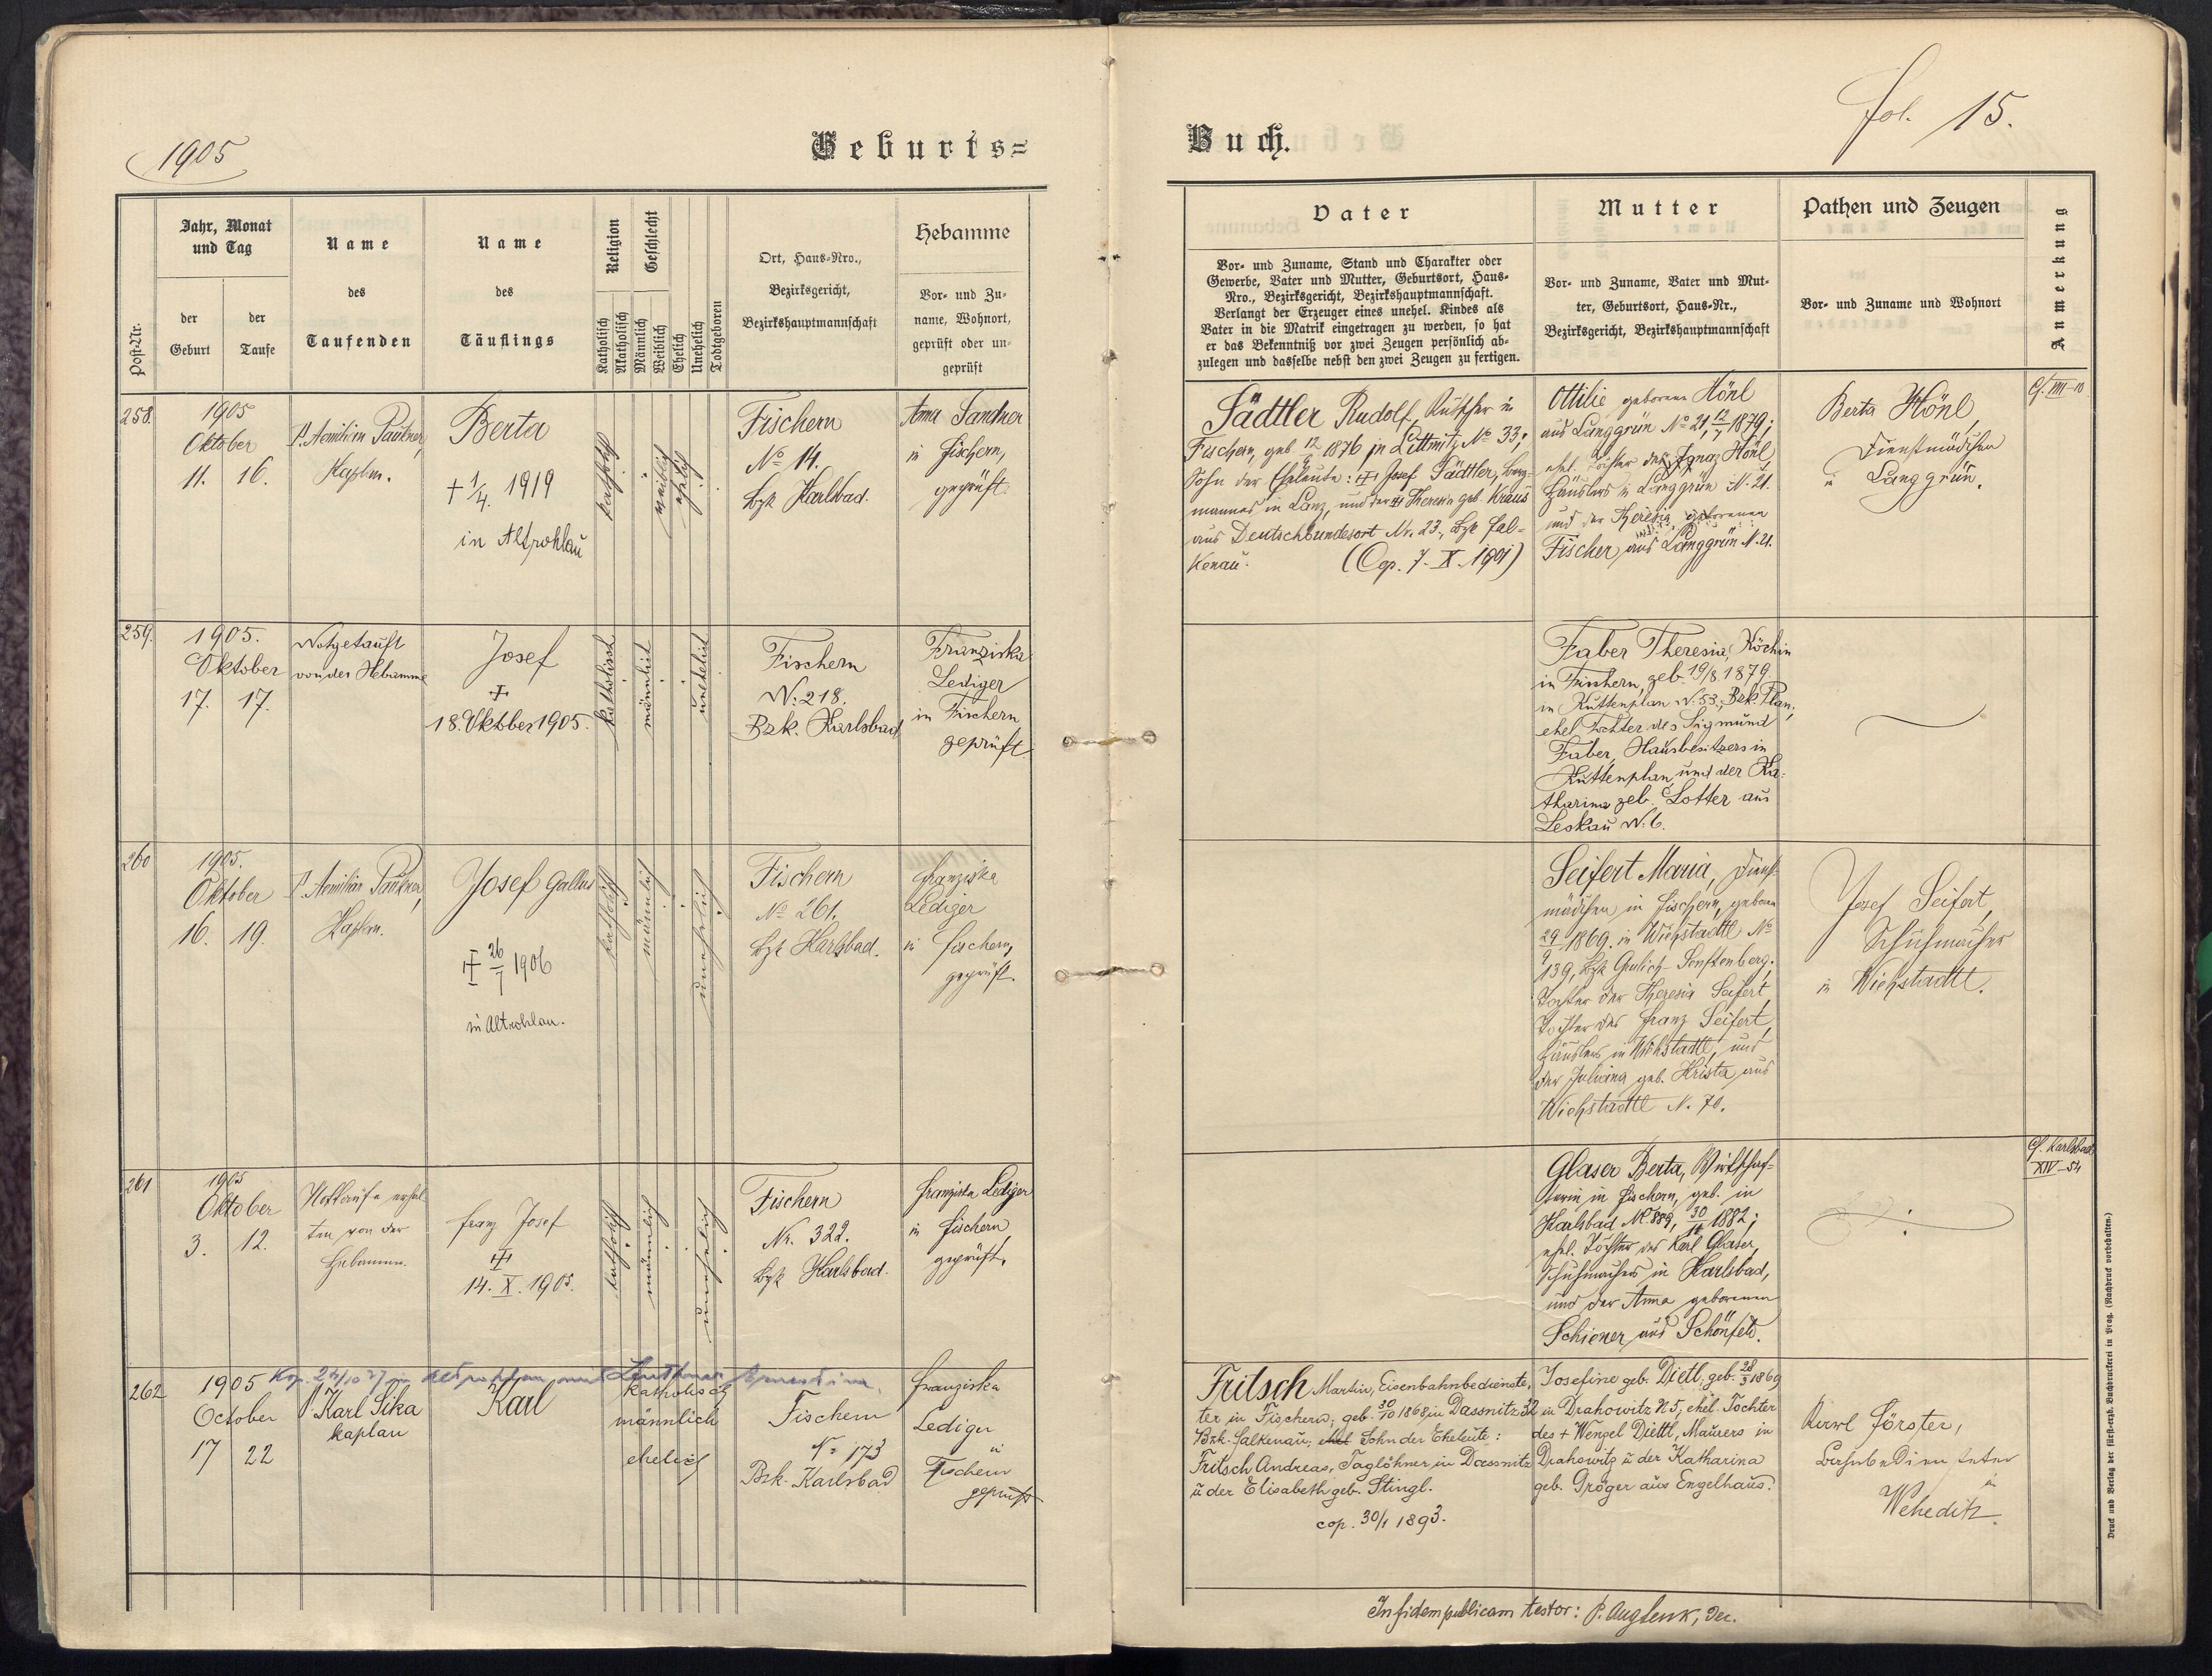 1905
Geburts=
Jahr, Monat
und Tag
der
Geburt
der
Taufe
Post-Nr.
Name
des
Taufenden
Name
des
Täuflings
Religion
Geschlecht
Katholisch
Akatholisch
Männlich
Weiblich
Ehelich
Unehelich
Todtgeboren
Ort, Haus=Nro.,
Bezirksgericht,
Bezirkshauptmannschaft
Hebamme
Vor= und Zu=
name, Wohnort,
geprüft oder un=
geprüft
258.
1905
Oktober
11. 16.
P. Aemilian Paukner,
Kaplan.
Berta
+ 1/4. 1919
in Altrohlau
katholisch
weiblich
ehelich
Fischern
No 14.
Bzk Karlsbad.
Anna Sandner
in Fischern,
geprüft.
259.
1905.
Oktober
17. 17.
Notgetauft
von der Hebamme
Josef
+
18. Oktober 1905.
katholisch
männlich
unehelich
Fischern
N: 218.
Bzk. Karlsbad
Franziska
Lediger
in Fischern
geprüft.
260
1905.
Oktober
16. 19.
P. Aemilian Paukner,
Kaplan.
Josef Gallus
+ 26/7 1906
in Altrohlau.
katholisch
männlich
unehelich
Fischern
No 261.
Bzk Karlsbad.
Franziska
Lediger
in Fischern,
geprüft.
261
1905
Oktober
3. 12.
Nottaufe erhal-
ten von der
Hebamme.
Franz Josef
+
14. X. 1905.
katholisch
männlich
unehelich
Fischern
Nr. 322.
Bzk Karlsbad.
Franziska Lediger
in Fischern
geprüft.
262
Kop. in Altrohlau mit
1905
October
17 22
P. Karl Sika
kaplan
Karl
katholisch
männlich
ehelich
Fischern
No 173
Bzk. Karlsbad
Franziska
Lediger
in
Fischern
geprüft
Buch.
fol. 15.
Vater
Vor= und Zuname, Stand und Charakter oder
Gewerbe, Vater und Mutter, Geburtsort, Haus=
Nro., Bezirksgericht, Bezirkshauptmannschaft.
Verlangt der Erzeuger eines unehel. Kindes als
Vater in die Matrik eingetragen zu werden, so hat
er das Bekenntniß vor zwei Zeugen persönlich ab=
zulegen und dasselbe nebst den zwei Zeugen zu fertigen.
Mutter
Vor= und Zuname, Vater und Mut=
ter, Geburtsort, Haus=Nr.,
Bezirksgericht, Bezirkshauptmannschaft
Pathen und Zeugen
Vor= und Zuname und Wohnort
Anmerkung
Sädtler Rudolf, Kutscher in
Fischern, geb 12/9 1876 in Littmitz No 33;
Sohn der Eheleute: + Josef Sädtler, Berg-
mannes in Lanz, und der Theresia geb. Kraus
aus Deutschbundesort Nr. 23, Bzk Fal=
kenau. (Cop. 7. X. 1901)
Ottilie geborene Hönl
aus Langgrün No 21, 12/7 1879;
ehel. Tochter des Ignaz Hönl,
Häuslers in Langgrün N. 21.
und der Theresia, geborenen
Fischer aus Langgrün N. 21.
Berta Hönl,
Dienstmädchen
in Langgrün.
Faber Theresia, Köchin
in Fischern, geb. 19/8 1879
in Kuttenplan N. 53; Bzk. Plan;
ehel Tochter des Sigmund
Faber, Hausbesitzers in
Kuttenplan, und der Ka-
tharina geb. Lotter aus
Leskau N. 6.
Seifert Maria, Dienst-
mädchen in Fischern, geboren
29/9 1869. in Wichstadtl No
139, Bzk Grulich-Senftenberg;
Tochter der Theresia Seifert,
Tochter des Franz Seifert,
Häuslers in Wichstadtl, und
der Juliana geb. Krista aus
Wichstadtl N. 70.
Josef Seifert,
Schuhmacher
in Wichstadtl.
Cf. Karlsbad
XIV-54
Glaser Berta, Wirtschaf-
terin in Fischern, geb. in
Karlsbad No 889, 1882;
ehel. Tochter des Karl Glaser,
Schuhmachers in Karlsbad,
und der Anna geborenen
Schiener aus Schönfeld.
Fritsch Martin, Eisenbahnbedienste-
ter in Fischern; geb. 30/10 1868 in Dassnitz 32
Bzk. Falkenau; ehel Sohn der Eheleute:
Fritsch Andreas, Taglöhner in Dassnitz
u der Elisabeth geb. Stingl.
cop. 30/1 1893.
Josefine geb. Dietl, geb. 28/3 1869
in Drahowitz N 5, ehel. Tochter
des + Wenzel Dietl, Maurers in
Drahowitz u der Katharina
geb. Gröger aus Engelhaus.
Karl Förster,
Bahnbediensteter
in
Weheditz.
In fidem publicam testor: P. Aug Lenk, Dec.
Druck und Verlag der fürsterzb. Buchdruckerei in Prag. (Nachdruck vorbehalten.)